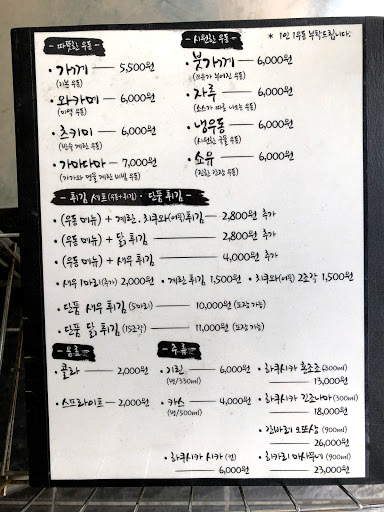 - 따뜻한 우동 -
· 가께 — 5,500원
(기본 우동)
· 와카메 — 6,000원
(미역 우동)
· 츠키미 — 6,000원
(반숙 계란 우동)
· 가마타마 — 7,000원
- 시원한 우동 -
* 1인 1우동 부탁드립니다.
· 붓가께 — 6,000원
· 자루 — 6,000원
(소스가 따로 나오는 우동)
· 냉우동 — 6,000원
(시원한 국물 우동)
· 쇼유 — 6,000원
(진한 간장 우동)
- 튀김 세트(우동+튀김) · 단품 튀김 -
· (우동 메뉴) + 계란, 치쿠와(어묵)튀김 — 2,800원 추가
· (우동 메뉴) + 닭 튀김 — 2,800원 추가
· (우동 메뉴) + 새우 튀김 — 4,000원 추가
· 새우 1마리(추가) 2,000원 · 계란 튀김 1,500원 · 치쿠와(어묵) 2조각 1,500원
· 단품 새우 튀김 (5마리) — 10,000원 (포장 가능)
· 단품 닭 튀김 (15조각) — 11,000원 (포장 가능)
- 음료 -
· 콜라 — 2,000원
· 스프라이트 — 2,000원
- 주류 -
· 기린 — 6,000원
(병/330ml)
· 카스 — 4,000원
(병/500ml)
· 하쿠시카 시카 (캔)
— 6,000원
· 하쿠시카 혼죠조 (300ml)
— 13,000원
· 하쿠시카 긴죠나마 (300ml)
— 18,000원
· 간바레 오또상 (900ml)
— 26,000원
· 히카리 마사무네 (900ml)
— 23,000원